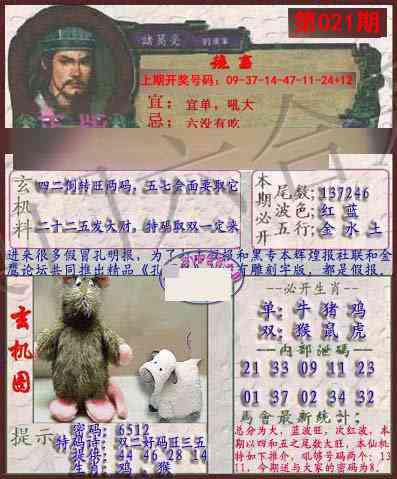 第021期
諸葛亮
玄鑫
上期开奖号码：09-37-14-47-11-24+12
宜：宜单，吼大
忌：六没有吃
玄机料
四二倒转旺两码，五七会面要取它
二十二五发大财，特码取双一定来
本期必开
尾数;137246
波色;红 蓝
五行;金 水 土
进来很多假冒孔明报，为了
报和黑专本辉煌报社联和金
鹰论坛共同推出精品《孔
有雕刻字版，都是假报．
玄机图
--必开生肖--
单：牛 猪 鸡
双：猴 鼠 虎
--内部泄码--
21 33 09 11 23
01 37 02 34 32
馬會最新统计：
总分为大，蓝波旺，次红波，本
期以四和五之尾数大旺，本仙机
特如下推介，吼够号码两个：13
11，今期送与大家的密码为8．
提示
密码：6512
特码诗：双二好码旺三五
提供：44 46 28 14
生肖：鸡 、猴